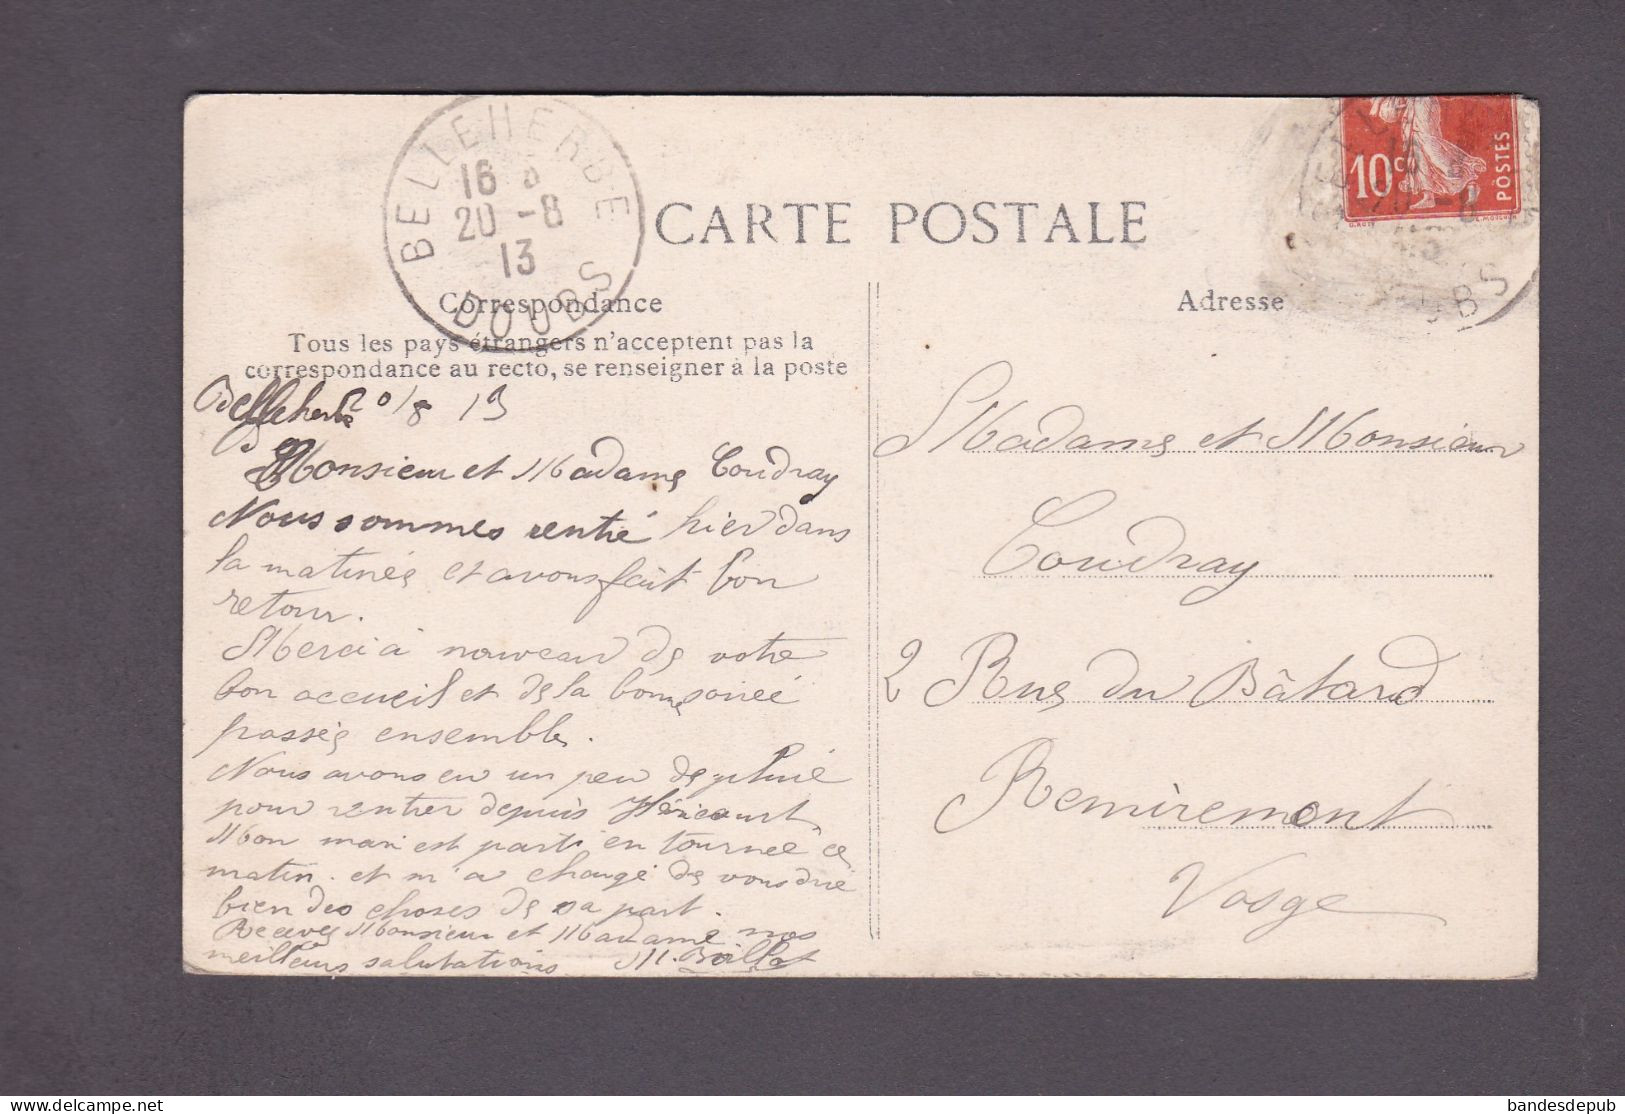 BELLEHERBE
16
20 -8
13
DOUBS
CARTE POSTALE
10c
POSTES
Correspondance
Adresse
Tous les pays étrangers n'acceptent pas la
correspondance au recto, se renseigner à la poste
Belleherbe 20/8 13
Monsieur et Madame Coudray
Nous sommes rentré hier dans
la matinée et avons fait bon
retour.
Merci à nouveau de votre
bon accueil et de la bonne soirée
passée ensemble.
Nous avons eu un peu de pluie
pour rentrer depuis Héricourt
Mon mari est parti en tournée ce
matin. et m'a chargé de vous dire
bien des choses de sa part.
Recevez Monsieur et Madame nos
meilleurs salutations M. Boillot
Madame et Monsieur
Coudray
2 Rue du Bâtard
Remiremont
Vosge
20 -8
BS
delcampe.net
bandesdepub